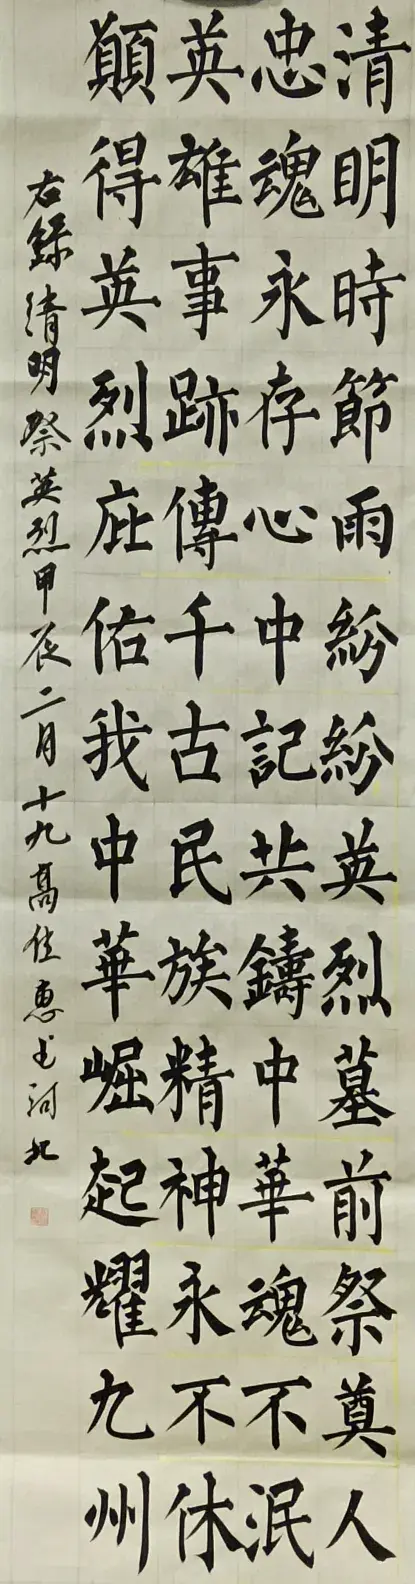 清明時節雨紛紛英烈墓前祭奠人
忠魂永存心中記共鑄中華魂不泯
英雄事跡傳千古民族精神永不休
顛得英烈庇佑我中華崛起耀九州
右錄清明祭英烈甲辰二月十九高佳惠书河北